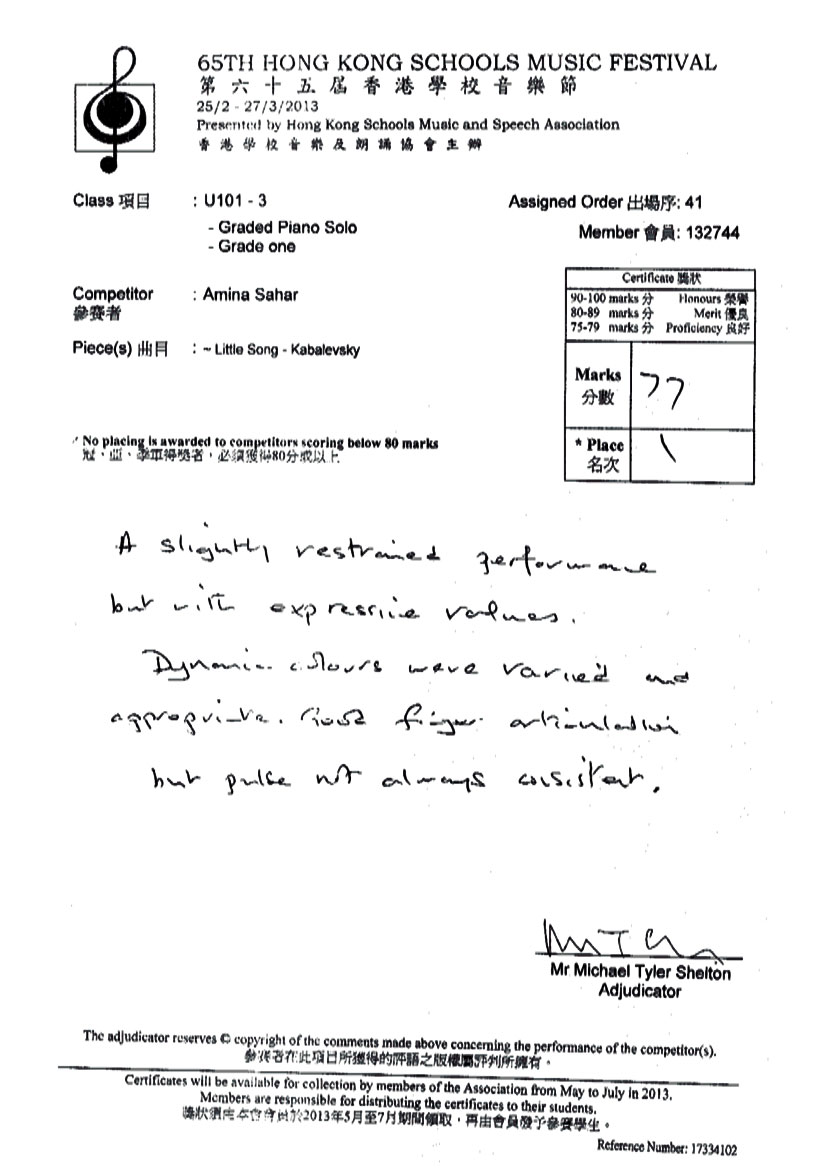 65TH HONG KONG SCHOOLS MUSIC FESTIVAL
第六十五屆香港學校音樂節
25/2 - 27/3/2013
Presented by Hong Kong Schools Music and Speech Association
香港學校音樂及朗誦協會主辦
Class 項目 : U101 - 3
- Graded Piano Solo
- Grade one
Assigned Order 出場序: 41
Member 會員: 132744
Competitor : Amina Sahar
參賽者
Piece(s) 曲目 : ~ Little Song - Kabalevsky
Certificate 獎狀
90-100 marks 分 Honours 榮譽
80-89 marks 分 Merit 優良
75-79 marks 分 Proficiency 良好
Marks 77
分數
* Place \
名次
* No placing is awarded to competitors scoring below 80 marks
冠、亞、季軍得獎者，必須獲得80分或以上
A slightly restrained performance
but with expressive values.
Dynamic colours were varied and
appropriate. Good finger articulation
but pulse not always consistent.
Mr Michael Tyler Shelton
Adjudicator
The adjudicator reserves © copyright of the comments made above concerning the performance of the competitor(s).
參賽者在此項目所獲得的評語之版權屬評判所擁有。
Certificates will be available for collection by members of the Association from May to July in 2013.
Members are responsible for distributing the certificates to their students.
獎狀須由本會會員於2013年5月至7月期間領取，再由會員發予參賽學生。
Reference Number: 17334102